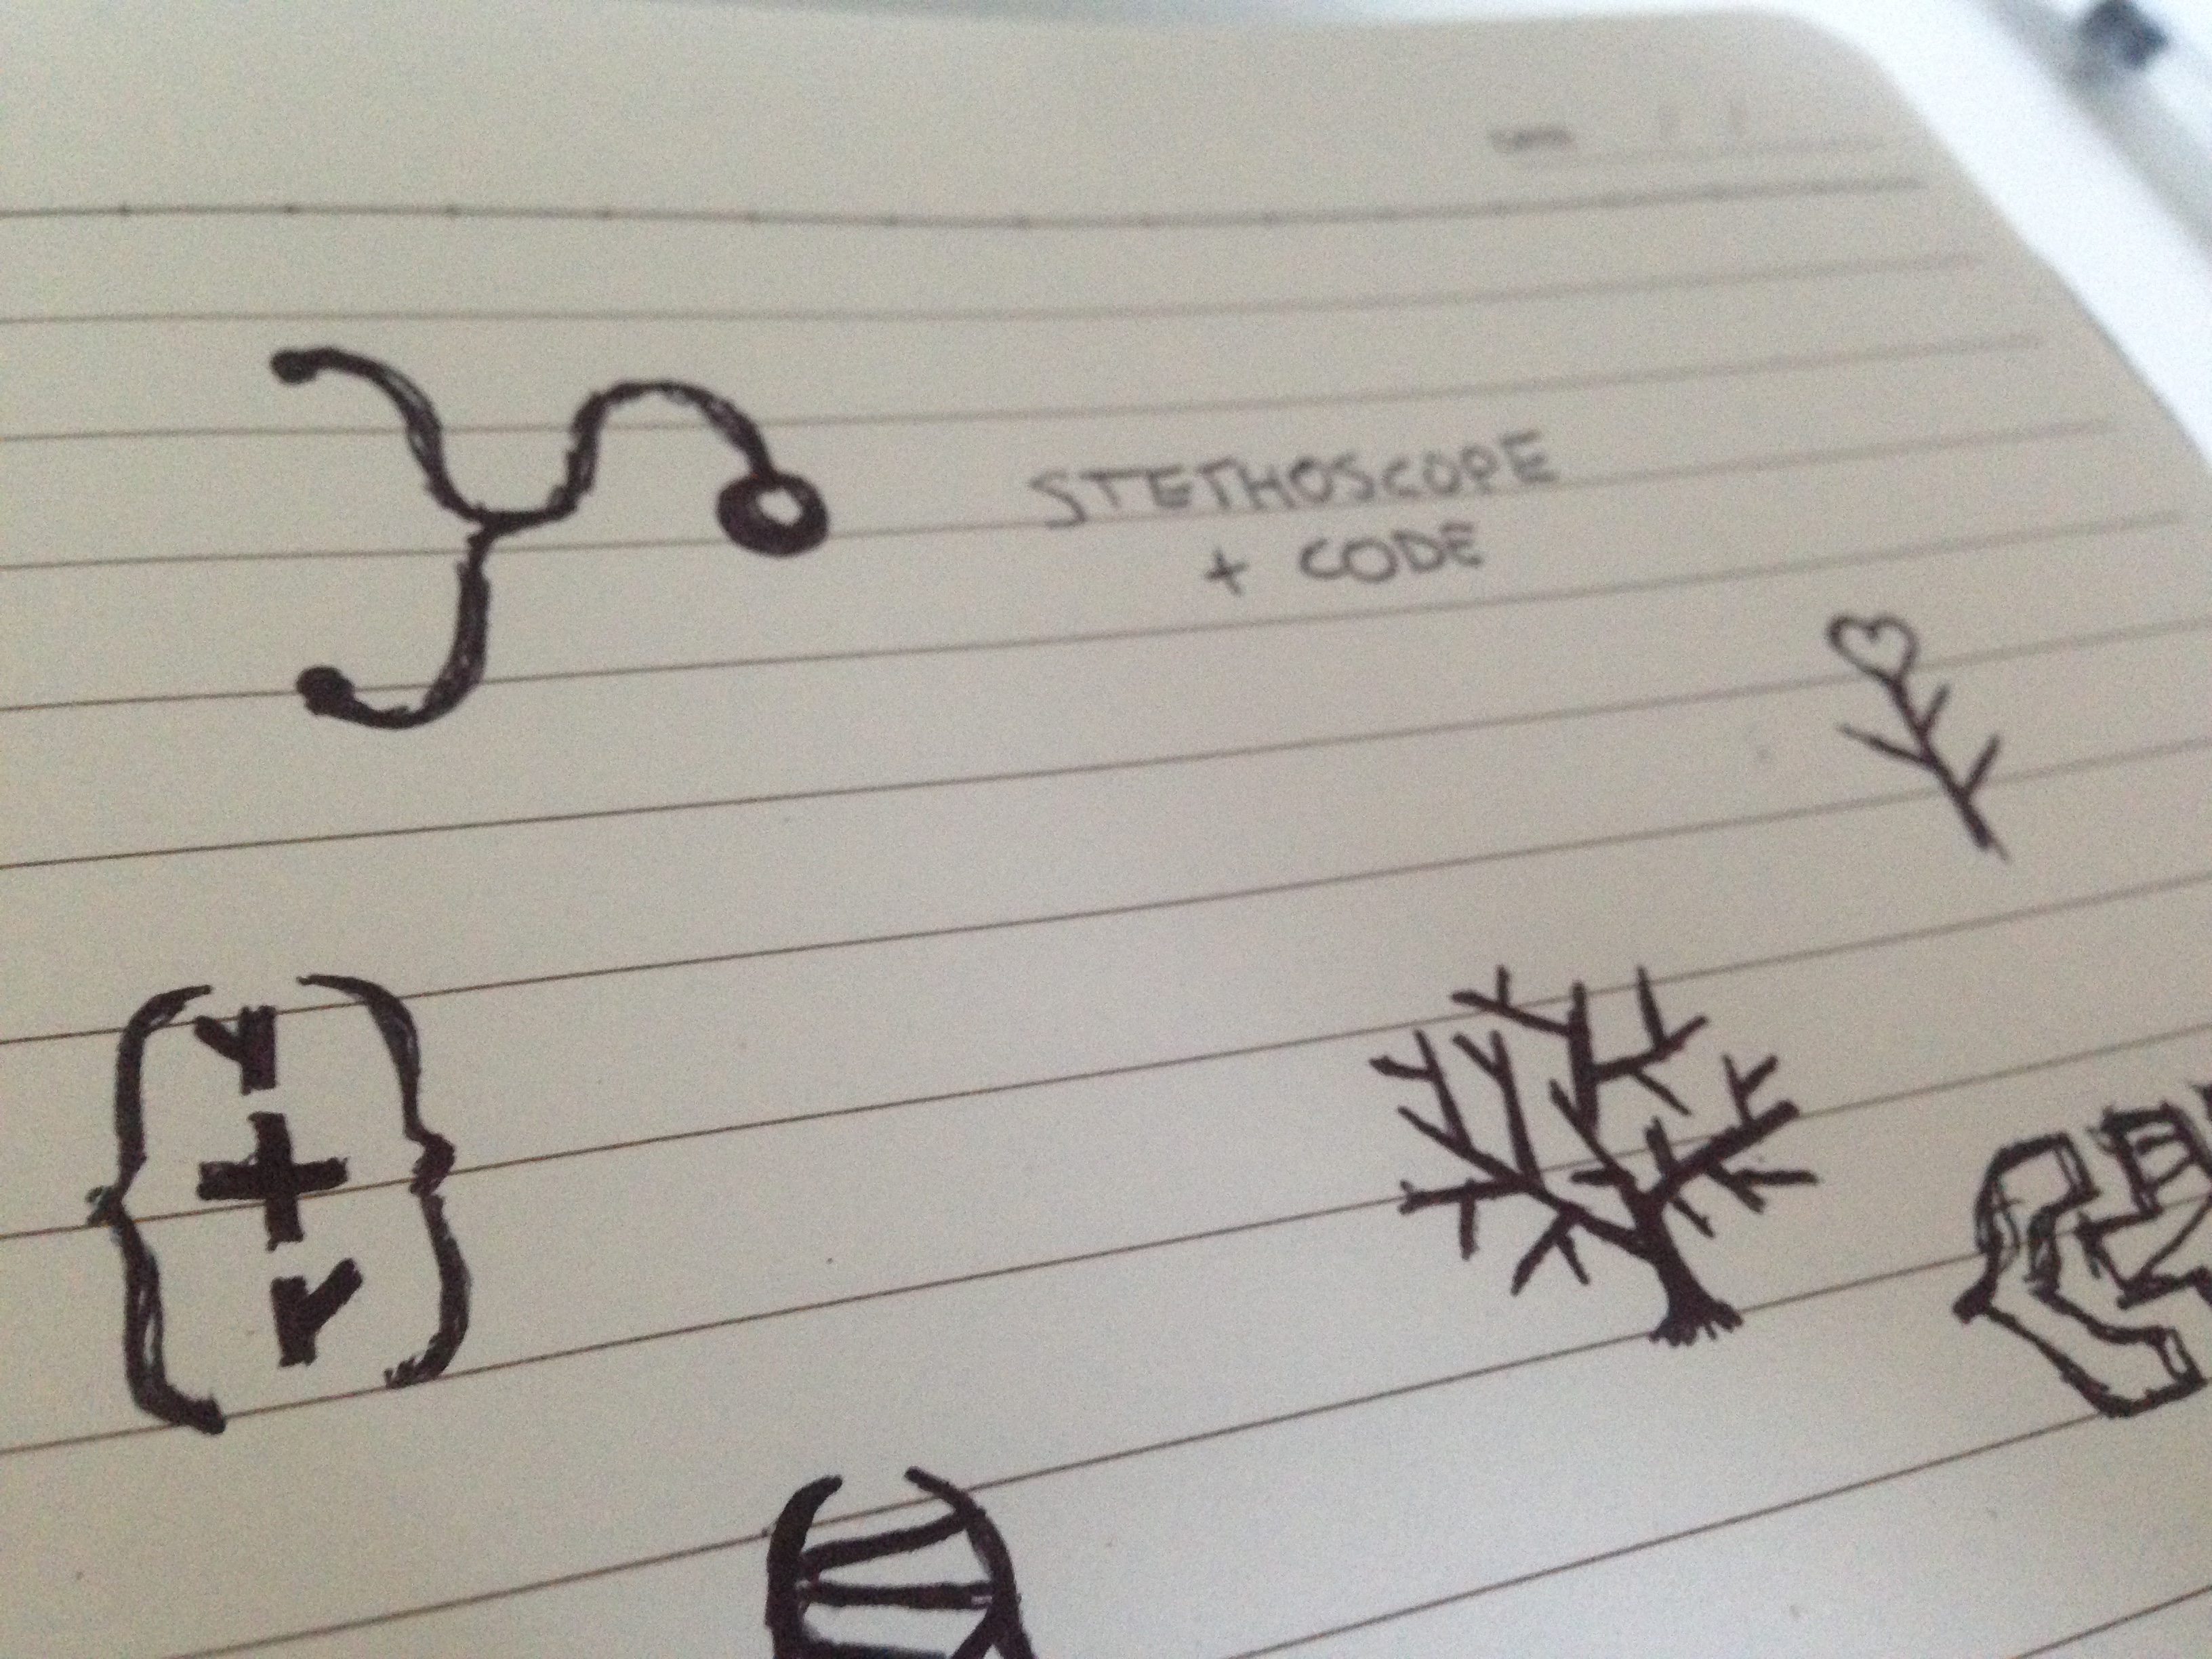 STETHOSCOPE
+ CODE